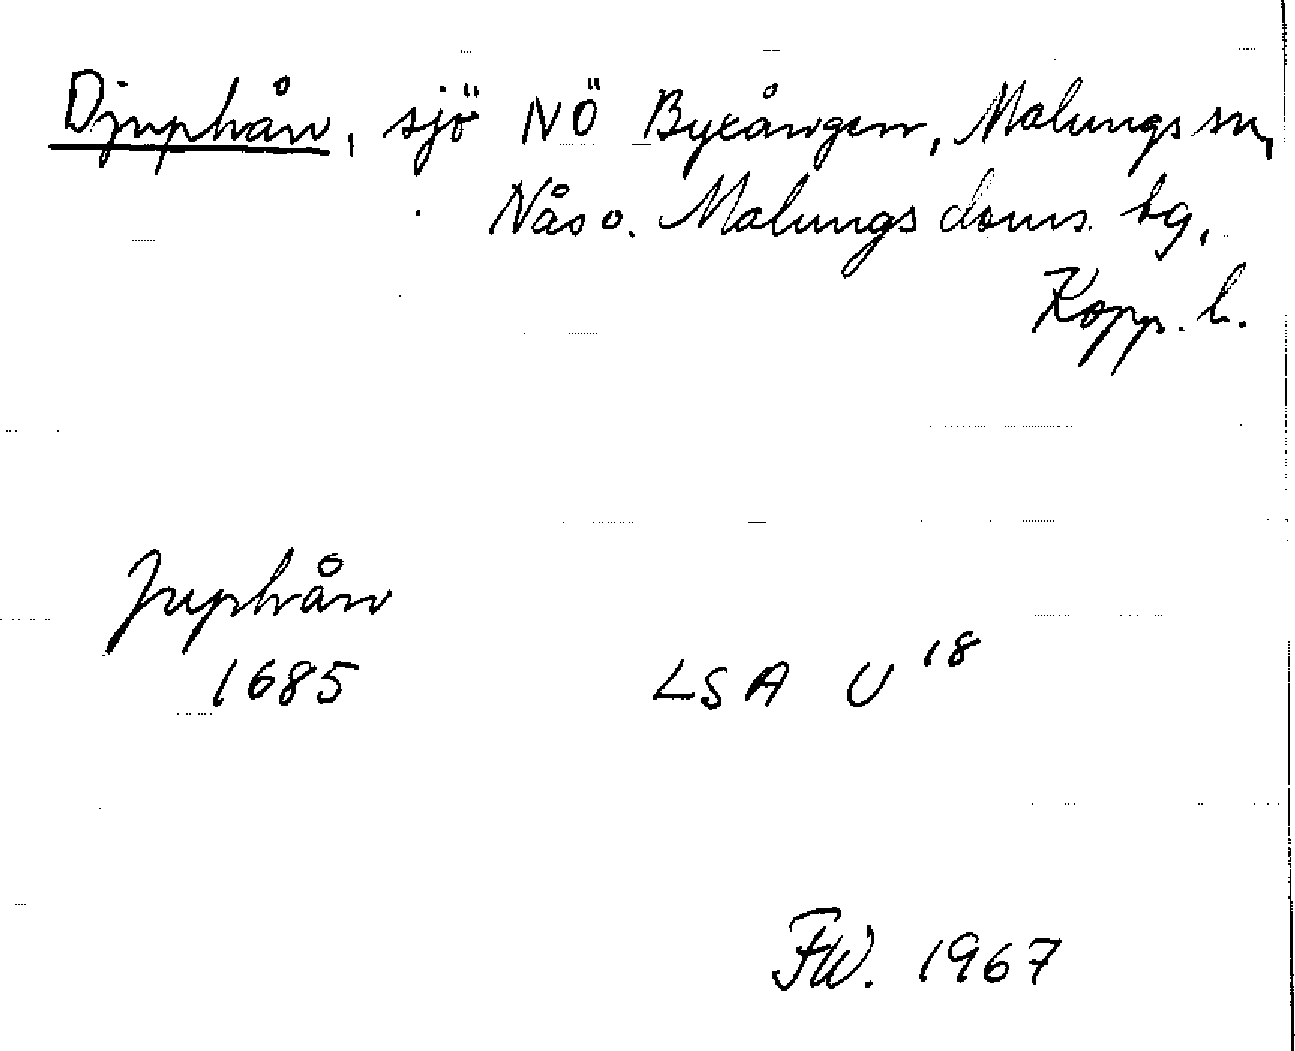 Djuphån, sjö NÖ Byrången, Malungs sn,
Nås o. Malungs doms. tg,
Kopp. l.
Juphån
1685 LSA U 18
FW. 1967